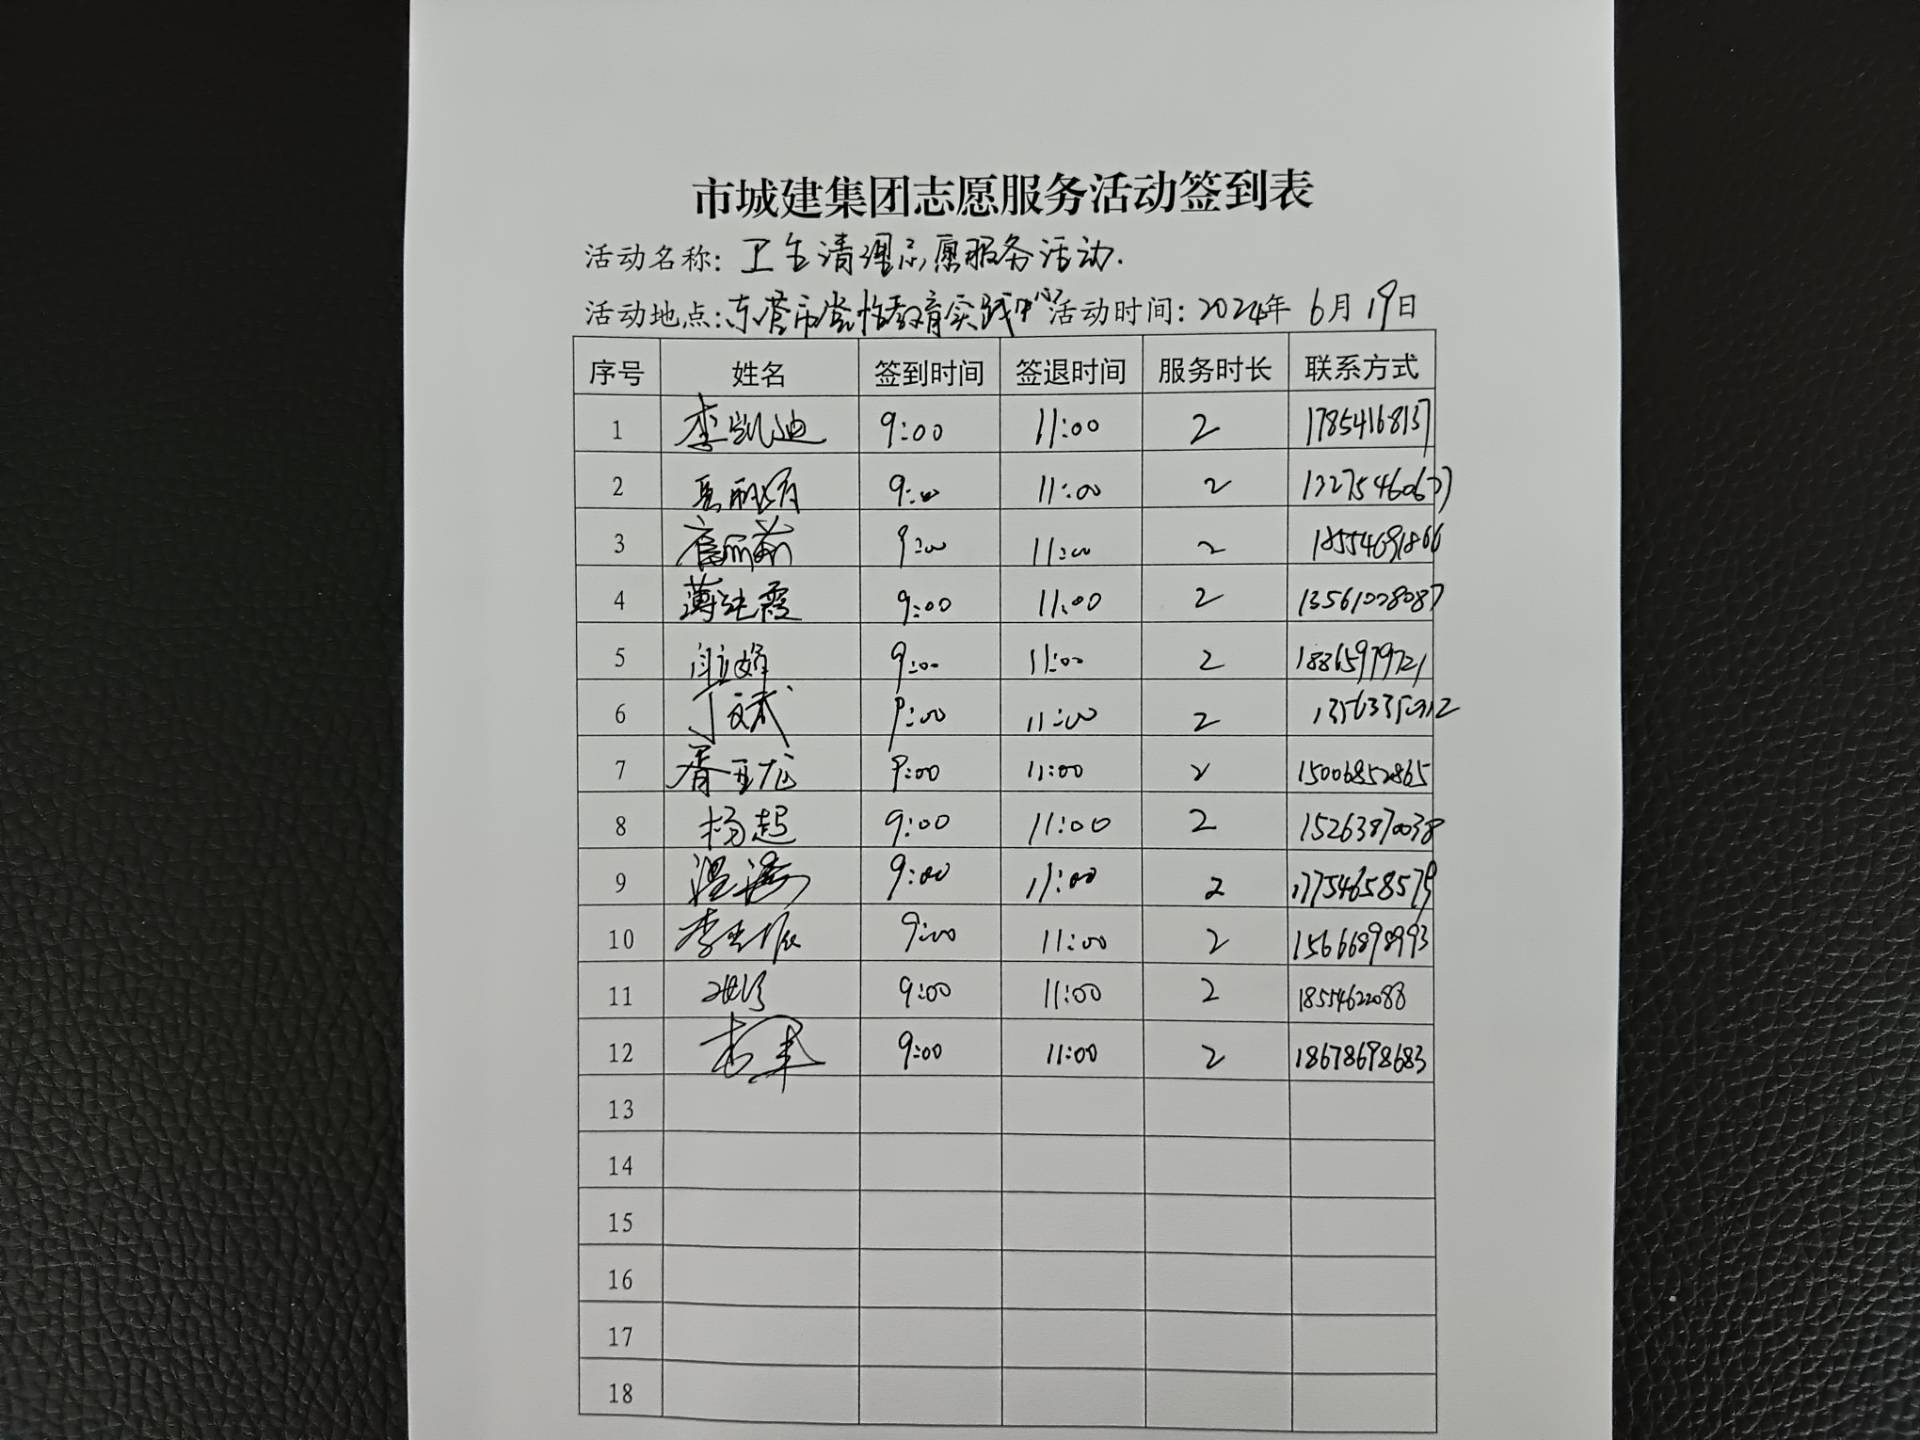 市城建集团志愿服务活动签到表
活动名称: 卫生清理志愿服务活动.
活动地点: 东营市党性教育实践中心 活动时间: 2024年 6月 19日
序号 姓名 签到时间 签退时间 服务时长 联系方式
1 李凯迪 9:00 11:00 2 17854168137
2 9:00 11:00 2
3 9:00 11:00 2 18554691866
4 薄纯霞 9:00 11:00 2 13561028087
5 9:00 11:00 2 18865979721
6 丁文武 9:00 11:00 2
7 胥亚龙 9:00 11:00 2 15006852865
8 杨超 9:00 11:00 2 15263870038
9 9:00 11:00 2 17754658579
10 9:00 11:00 2 15666898993
11 9:00 11:00 2 18554622088
12 9:00 11:00 2 18678698683
13
14
15
16
17
18